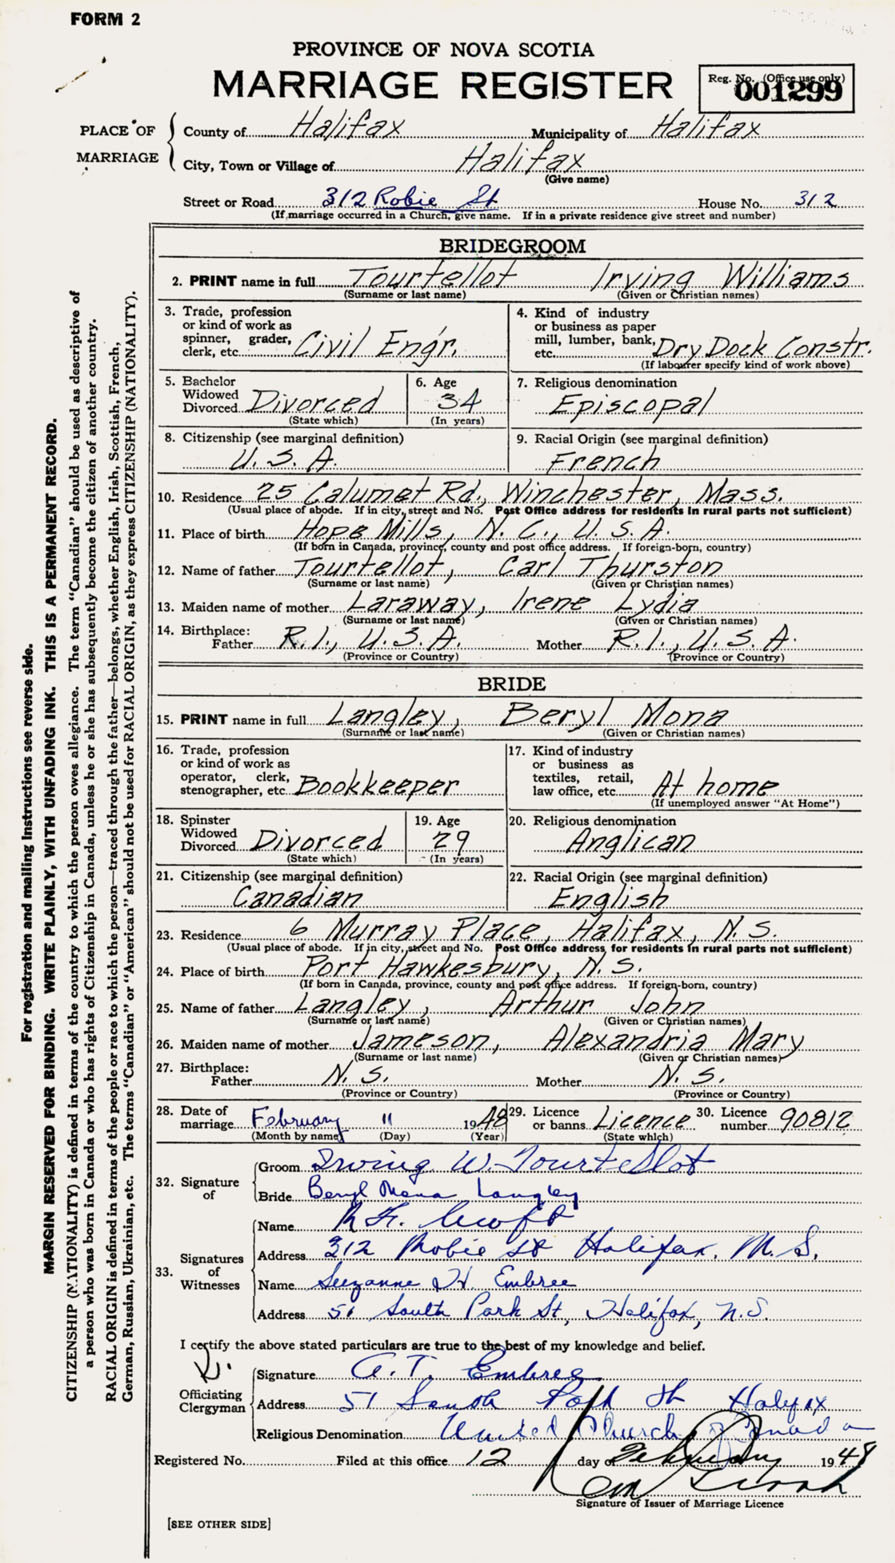 FORM 2
PROVINCE OF NOVA SCOTIA
MARRIAGE REGISTER
Reg. No. (Office use only)
001299
PLACE OF MARRIAGE
County of Halifax Municipality of Halifax
City, Town or Village of Halifax
(Give name)
Street or Road 312 Robie St House No. 312
(If marriage occurred in a Church, give name. If in a private residence give street and number)
BRIDEGROOM
2. PRINT name in full Tourtellot Irving Williams
(Surname or last name) (Given or Christian names)
3. Trade, profession or kind of work as spinner, grader, clerk, etc. Civil Engr.
4. Kind of industry or business as paper mill, lumber, bank, etc. Dry Dock Constr.
(If labourer specify kind of work above)
5. Bachelor Widowed Divorced Divorced
(State which)
6. Age 34
(In years)
7. Religious denomination
Episcopal
8. Citizenship (see marginal definition)
U. S. A.
9. Racial Origin (see marginal definition)
French
10. Residence 25 Calumet Rd., Winchester, Mass.
(Usual place of abode. If in city, street and No. Post Office address for residents in rural parts not sufficient)
11. Place of birth Hope Mills, N. C., U. S. A.
(If born in Canada, province, county and post office address. If foreign-born, country)
12. Name of father Tourtellot, Carl Thurston
(Surname or last name) (Given or Christian names)
13. Maiden name of mother Laraway, Irene Lydia
(Surname or last name) (Given or Christian names)
14. Birthplace: Father R. I., U. S. A. Mother R. I., U. S. A.
(Province or Country) (Province or Country)
BRIDE
15. PRINT name in full Langley, Beryl Mona
(Surname or last name) (Given or Christian names)
16. Trade, profession or kind of work as operator, clerk, stenographer, etc. Bookkeeper
17. Kind of industry or business as textiles, retail, law office, etc. At home
(If unemployed answer "At Home")
18. Spinster Widowed Divorced Divorced
(State which)
19. Age 29
(In years)
20. Religious denomination
Anglican
21. Citizenship (see marginal definition)
Canadian
22. Racial Origin (see marginal definition)
English
23. Residence 6 Murray Place, Halifax, N. S.
(Usual place of abode. If in city, street and No. Post Office address for residents in rural parts not sufficient)
24. Place of birth Port Hawkesbury, N. S.
(If born in Canada, province, county and post office address. If foreign-born, country)
25. Name of father Langley, Arthur John
(Surname or last name) (Given or Christian names)
26. Maiden name of mother Jameson, Alexandria Mary
(Surname or last name) (Given or Christian names)
27. Birthplace: Father N. S. Mother N. S.
(Province or Country) (Province or Country)
28. Date of marriage February 11 1948
(Month by name) (Day) (Year)
29. Licence or banns Licence
(State which)
30. Licence number 90812
32. Signature of
Groom Irving W. Tourtellot
Bride Beryl Mona Langley
33. Signatures of Witnesses
Name
Address 312 Robie St Halifax. N. S.
Name Suzanne H. Embree
Address 51 South Park St, Halifax, N.S.
I certify the above stated particulars are true to the best of my knowledge and belief.
Officiating Clergyman
Signature A. T. Embree
Address 51 South Park St Halifax
Religious Denomination United Church of Canada
Registered No. Filed at this office 12 day of February 1948
Signature of Issuer of Marriage Licence
[SEE OTHER SIDE]
For registration and mailing instructions see reverse side.
MARGIN RESERVED FOR BINDING. WRITE PLAINLY, WITH UNFADING INK. THIS IS A PERMANENT RECORD.
CITIZENSHIP (NATIONALITY) is defined in terms of the country to which the person owes allegiance. The term "Canadian" should be used as descriptive of
a person who was born in Canada or who has rights of Citizenship in Canada, unless he or she has subsequently become the citizen of another country.
RACIAL ORIGIN is defined in terms of the people or race to which the person—traced through the father—belongs, whether English, Irish, Scottish, French,
German, Russian, Ukrainian, etc. The terms "Canadian" or "American" should not be used for RACIAL ORIGIN, as they express CITIZENSHIP (NATIONALITY).